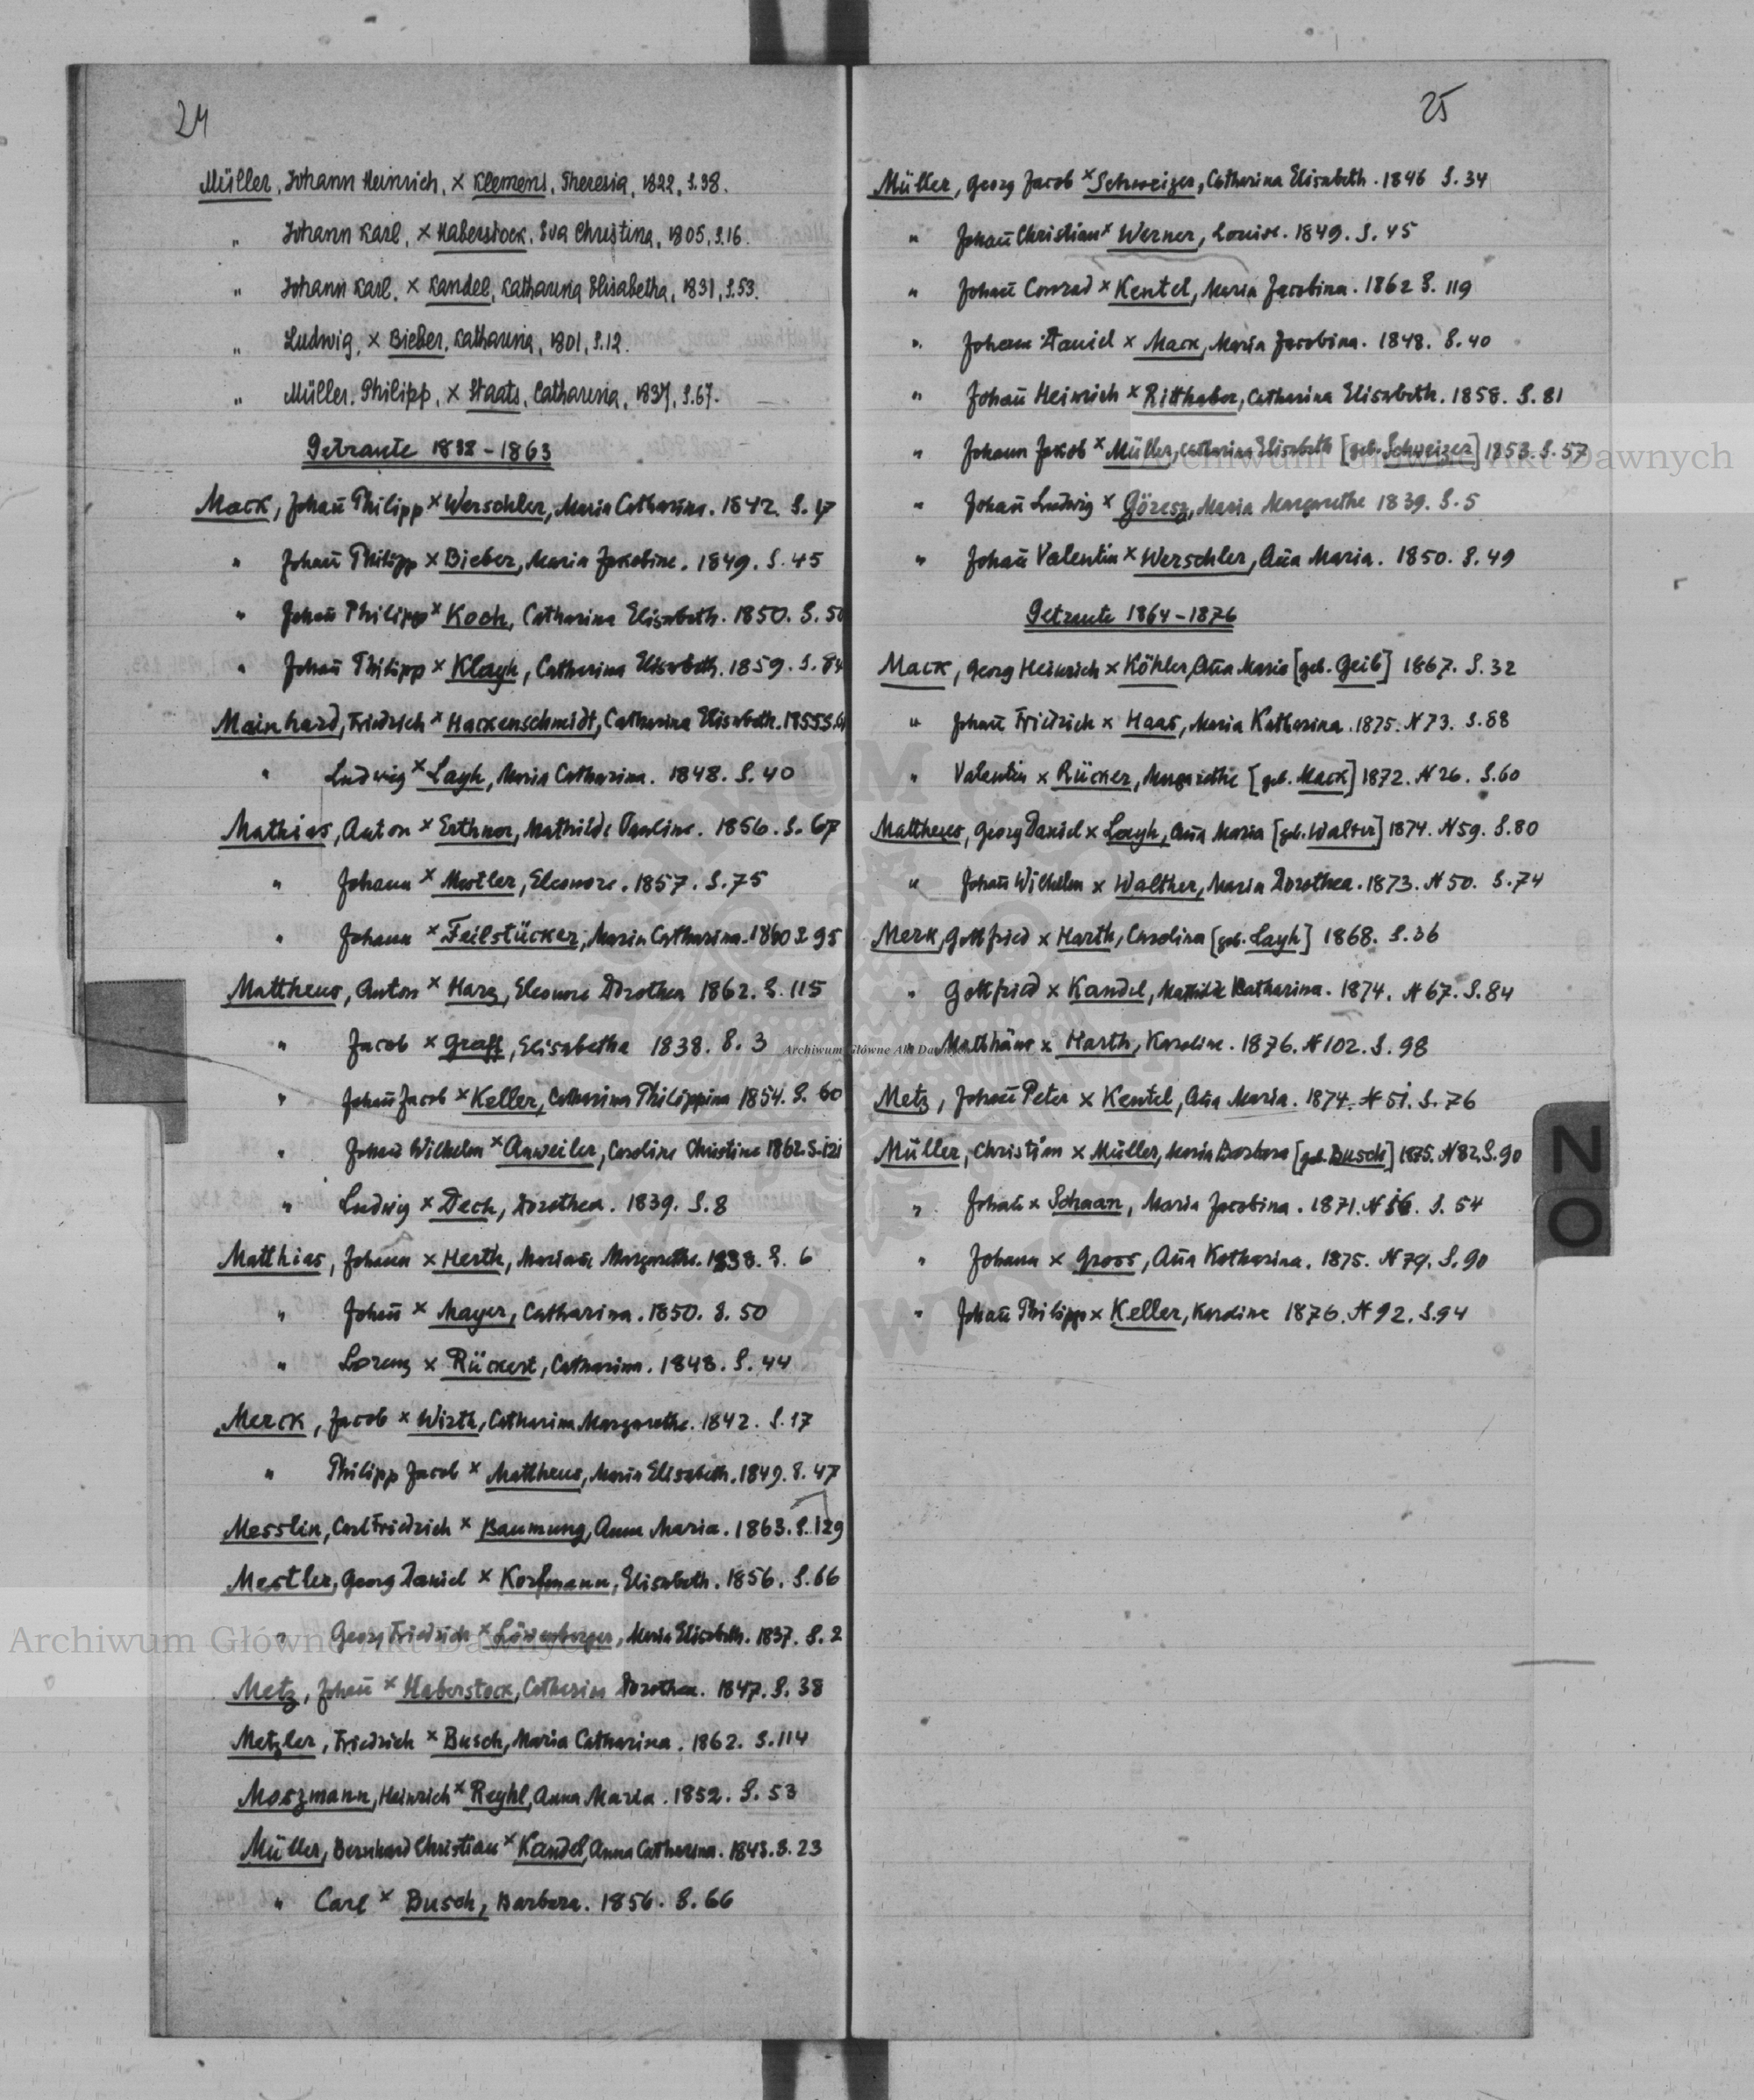 24
Müller, Johann Heinrich, × Klemens, Theresia, 1822, S.38.
" Johann Karl, × Haberstock, Eva Christina, 1805, S.16.
" Johann Karl, × Kandel, Katharina Elisabetha, 1831, S.53.
" Ludwig, × Bieber, Katharina, 1801, S.12.
" Müller, Philipp, × Staats, Catharina, 1837, S.67.
Getraute 1838-1863
Mack, Johañ Philipp × Werschler, Maria Catharina. 1842. S. 17
" Johañ Philipp × Bieber, Maria Jakobine. 1849. S. 45
" Johañ Philipp × Koch, Catharina Elisabeth. 1850. S. 50
" Johañ Philipp × Klayh, Catharina Elisabeth. 1859. S. 84
Mainhard, Friedrich × Hackenschmidt, Catharina Elisabeth. 1855 S.
" Ludwig × Layh, Maria Catharina. 1848. S. 40
Mathias, Anton × Erthner, Mathilde Pauline. 1856. S. 67
" Johann × Mestler, Eleonore. 1857. S. 75
" Johann × Feilstücker, Maria Catharina. 1860 S. 95
Mattheus, Anton × Harz, Eleonore Dorothea 1862. S. 115
" Jacob × Graff, Elisabetha 1838. S. 3
" Johañ Jacob × Keller, Catharina Philippina 1854. S. 60
" Johañ Wilhelm × Anweiler, Caroline Christine 1862. S. 121
" Ludwig × Dech, Dorothea. 1839. S. 8
Matthias, Johann × Herth, Margarethe. 1838. S. 6
" Johañ × Mayer, Catharina. 1850. S. 50
" Lorenz × Rückert, Catharina. 1848. S. 44
Merck, Jacob × Wirth, Catharina Margarethe. 1842. S. 17
" Philipp Jacob × Mattheus, Maria Elisabeth. 1849. S. 47
Messlin, Carl Friedrich × Baumung, Anna Maria. 1863. S. 129
Mestler, Georg Daniel × Korfmann, Elisabeth. 1856. S. 66
" Georg Friedrich × Löwenberger, Maria Elisabeth. 1837. S. 2
Metz, Johañ × Haberstock, Catharina Dorothea. 1847. S. 38
Metzler, Friedrich × Busch, Maria Catharina. 1862. S. 114
Moszmann, Heinrich × Reyhl, Anna Maria. 1852. S. 53
Müller, Bernhard Christian × Kandel, Anna Catharina. 1843. S. 23
" Carl × Busch, Barbara. 1856. S. 66
25
Müller, Georg Jacob × Schweizer, Catharina Elisabeth. 1846 S. 34
" Johañ Christian × Werner, Louise. 1849. S. 45
" Johañ Conrad × Kentel, Maria Jacobina. 1862 S. 119
" Johann Daniel × Mack, Maria Jacobina. 1848. S. 40
" Johañ Heinrich × Ritthaber, Catharina Elisabeth. 1858. S. 81
" Johann Jakob × Müller, Catharina Elisabeth [geb. Schweizer] 1853. S. 57
" Johañ Ludwig × Göresz, Maria Margarethe 1839. S. 5
" Johañ Valentin × Werschler, Aña Maria. 1850. S. 49
Getraute 1864-1876
Mack, Georg Heinrich × Köhler, Aña Maria [geb. Geib] 1867. S. 32
" Johañ Friedrich × Haas, Maria Katharina. 1875. N 73. S. 88
" Valentin × Rücker, Margarethe [geb. Mack] 1872. N 26. S. 60
Mattheus, Georg Daniel × Layh, Aña Maria [geb. Walter] 1874. N 59. S. 80
" Johañ Wilhelm × Walther, Maria Dorothea. 1873. N 50. S. 74
Merk, Gottfried × Harth, Carolina [geb. Layh] 1868. S. 36
" Gottfried × Kandel, Mathilde Katharina. 1874. N 67. S. 84
" Mathäus × Harth, Karoline. 1876. N 102. S. 98
Metz, Johañ Peter × Kentel, Aña Maria. 1874. N 51. S. 76
Müller, Christian × Müller, Maria Barbara [geb. Busch] 1875. N 82. S. 90
" Johañ × Schaan, Maria Jacobina. 1871. N 56. S. 54
" Johann × Gross, Aña Katharina. 1875. N 79. S. 90
" Johañ Philipp × Keller, Karoline 1876. N 92. S. 94
NO
Archiwum Główne Akt Dawnych
Archiwum Główne Akt Dawnych